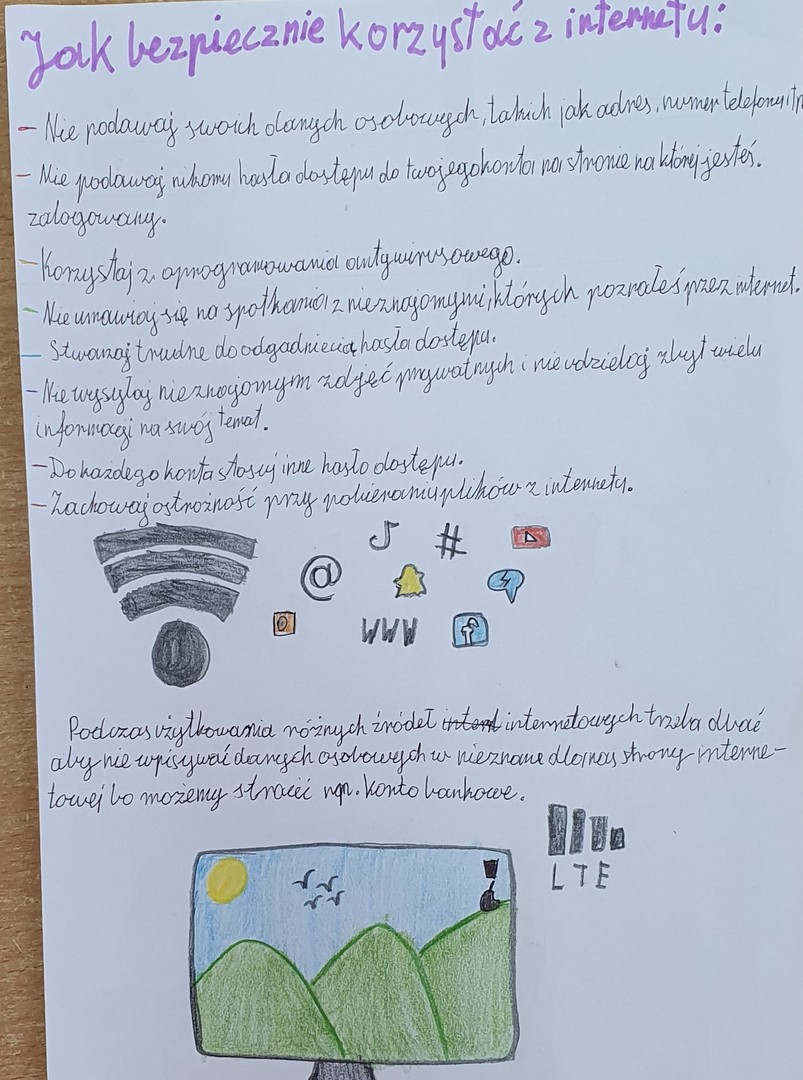 Jak bezpiecznie korzystać z internetu:
- Nie podawaj swoich danych osobowych, takich jak adres, numer telefonu itp
- Nie podawaj nikomu hasła dostępu do twojego konta na stronie na której jesteś.
zalogowany.
- Korzystaj z oprogramowania antywirusowego.
- Nie umawiaj się na spotkania z nieznajomymi, których poznałeś przez internet.
- Stwarzaj trudne do odgadniecia hasła dostępu.
- Nie wysyłaj nieznajomym zdjęć prywatnych i nie udzielaj zbyt wielu
informacji na swój temat.
- Do każdego konta stosuj inne hasło dostępu.
- Zachowaj ostrożność przy pobieraniu plików z internetu.
#
@
WWW
f
Podczas użytkowania różnych źródeł internetowych trzeba dbać
aby nie wpisywać danych osobowych w nieznane dla nas strony interne-
towej bo możemy stracić np. konto bankowe.
LTE